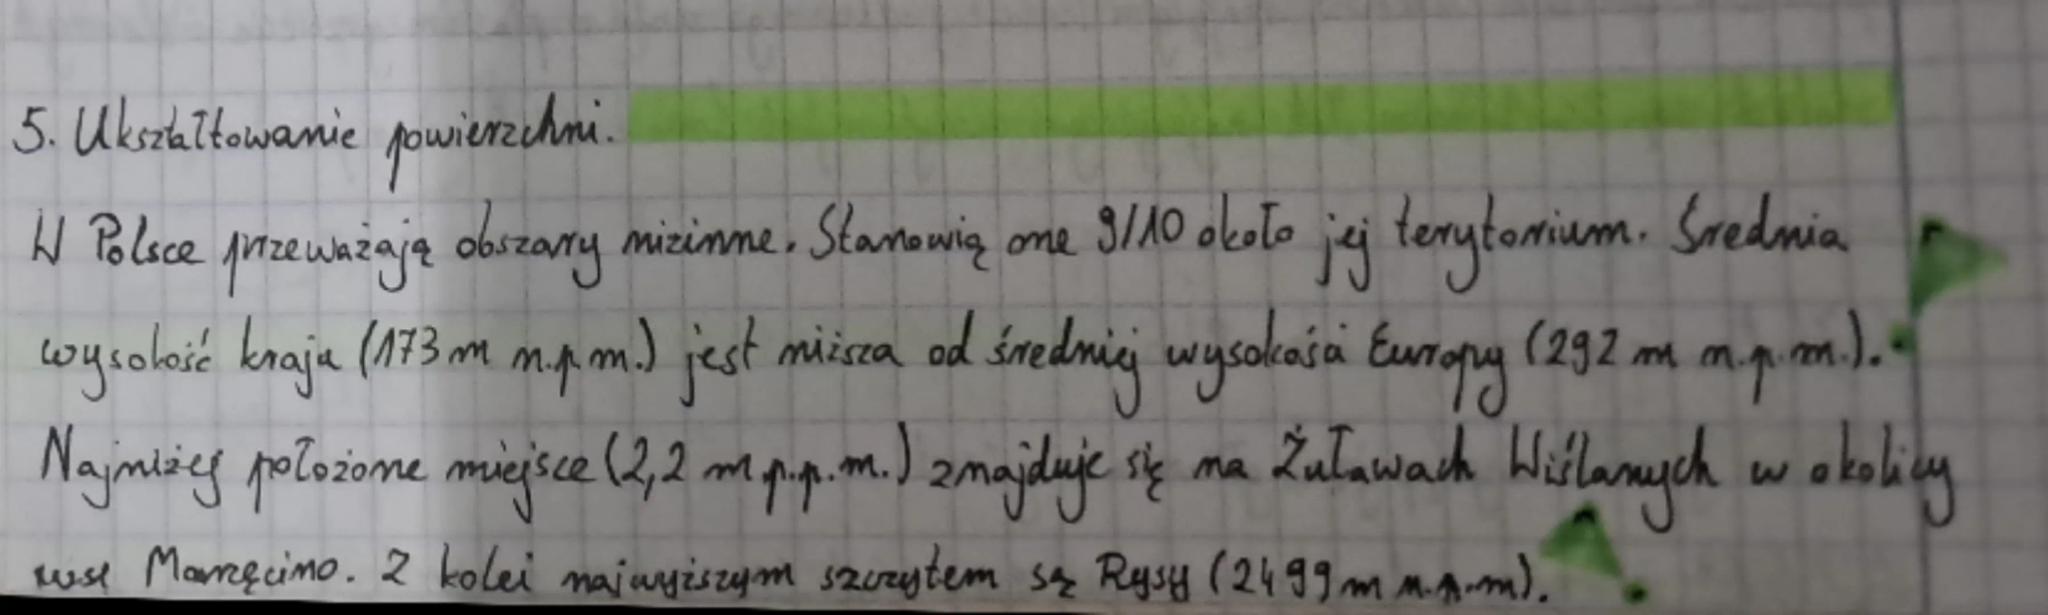 5. Ukształtowanie powierzchni.
W Polsce przeważają obszary nizinne. Stanowią one 9/10 około jej terytorium. Średnia
wysokość kraju (173 m n.p.m.) jest niższa od średniej wysokości Europy (292 m n.p.m.).
Najniżej położone miejsce (2,2 m p.p.m.) znajduje się na Żuławach Wiślanych w okolicy
wsi Marzęcino. Z kolei najwyższym szczytem są Rysy (2499 m n.p.m).